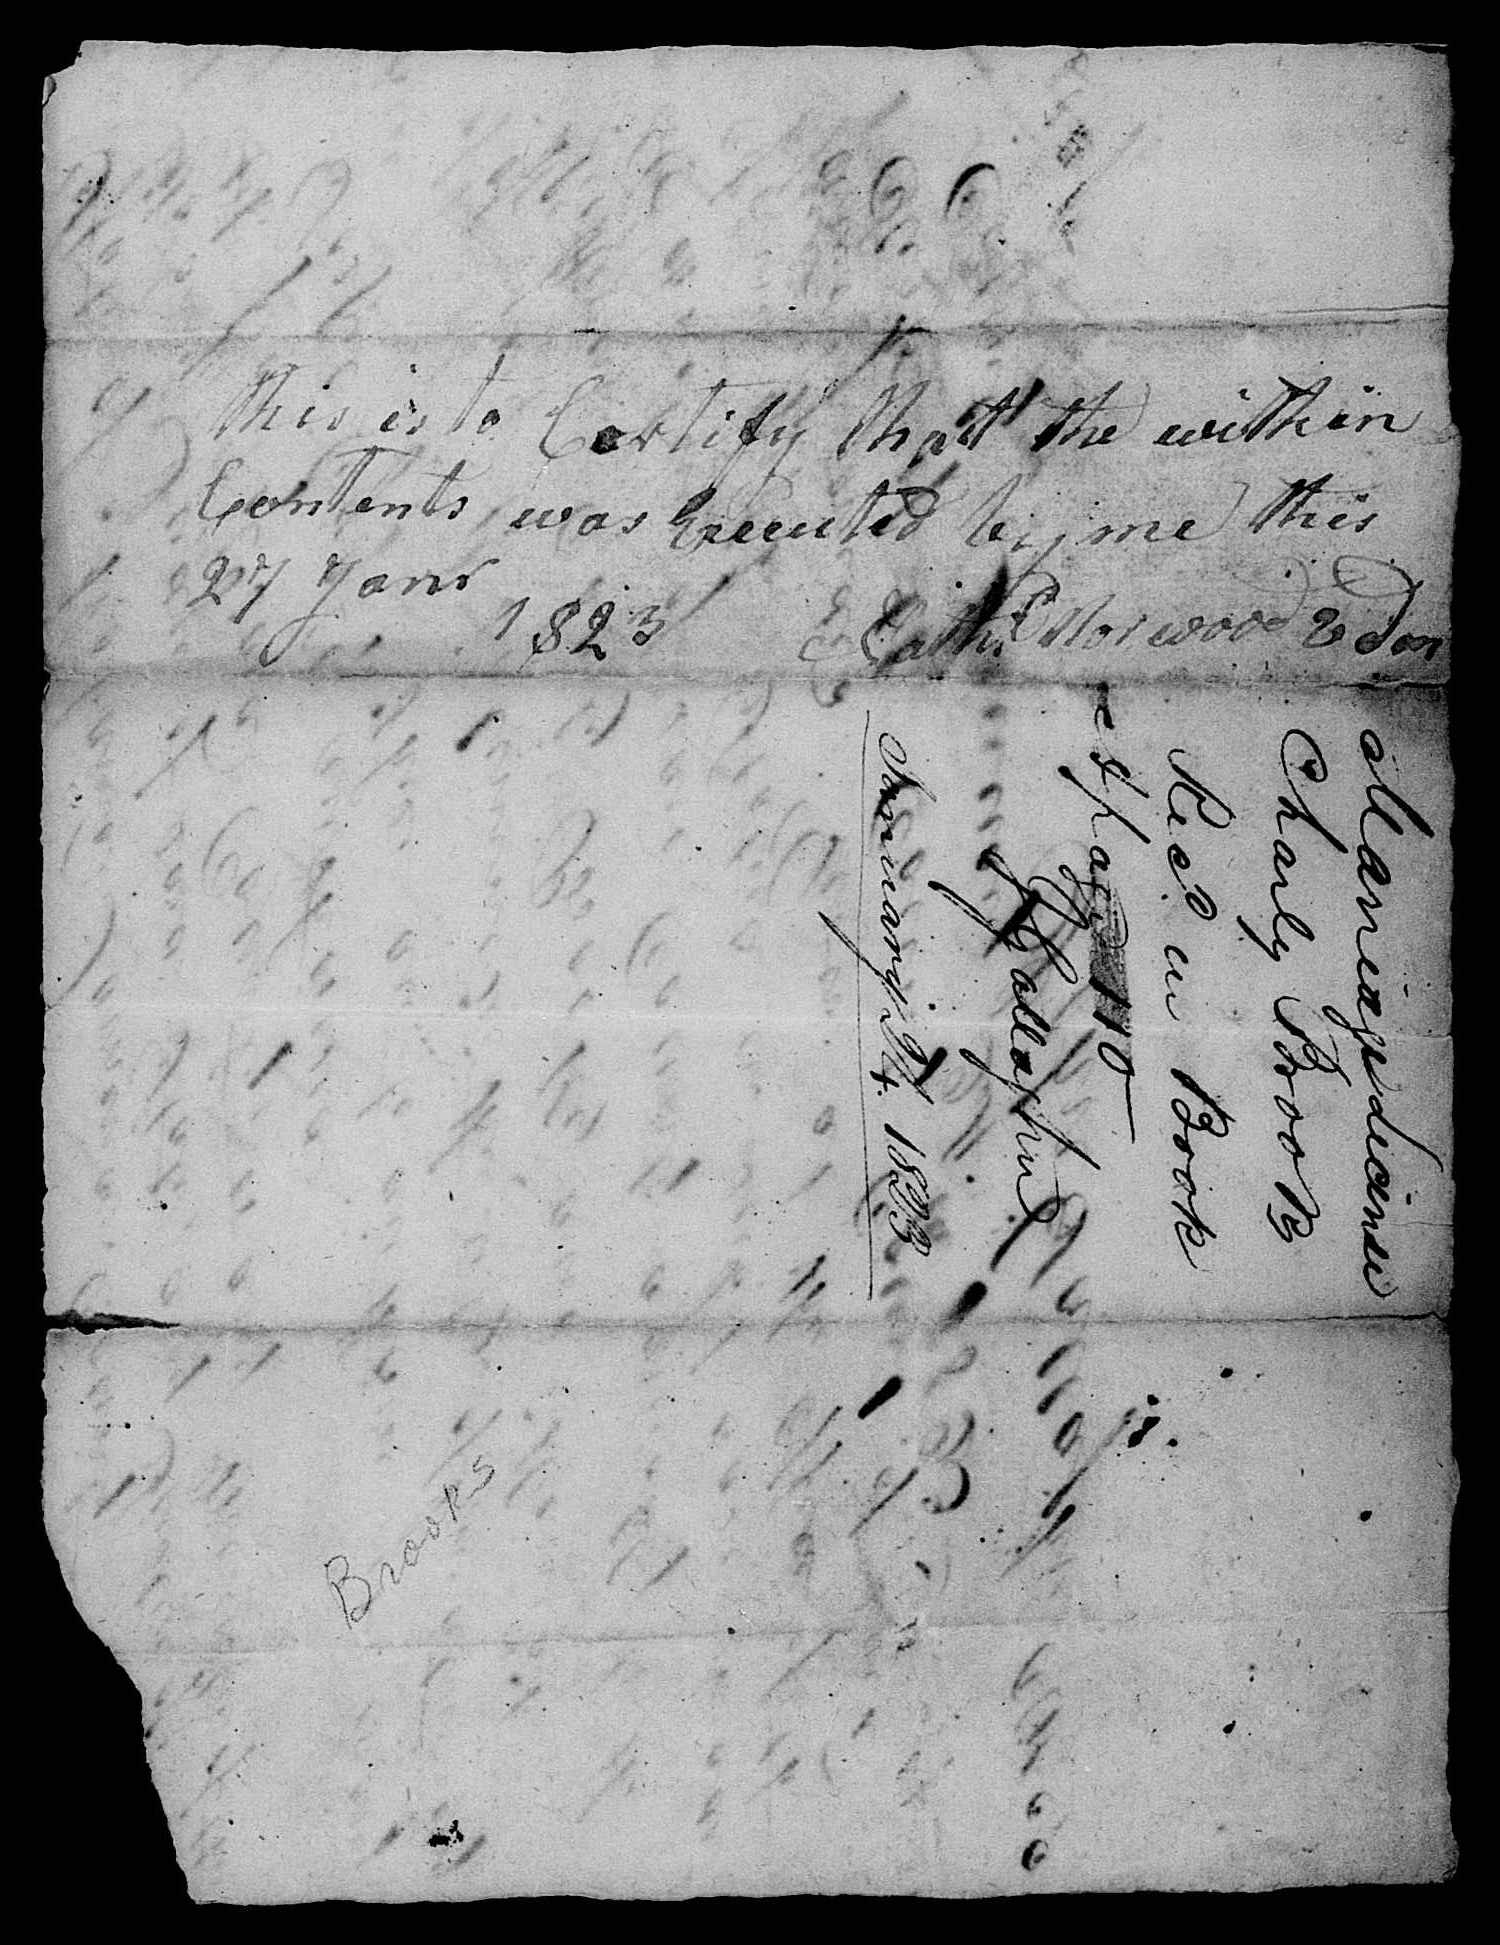 this is to Certify that the within
Contents was Executed by me this
27 Janr
1823 Nath. Norwood V D M
Marriage License
Charly Brooks
Recd in Book
page 110
Gallaghu
January 24. 1823
Brooks